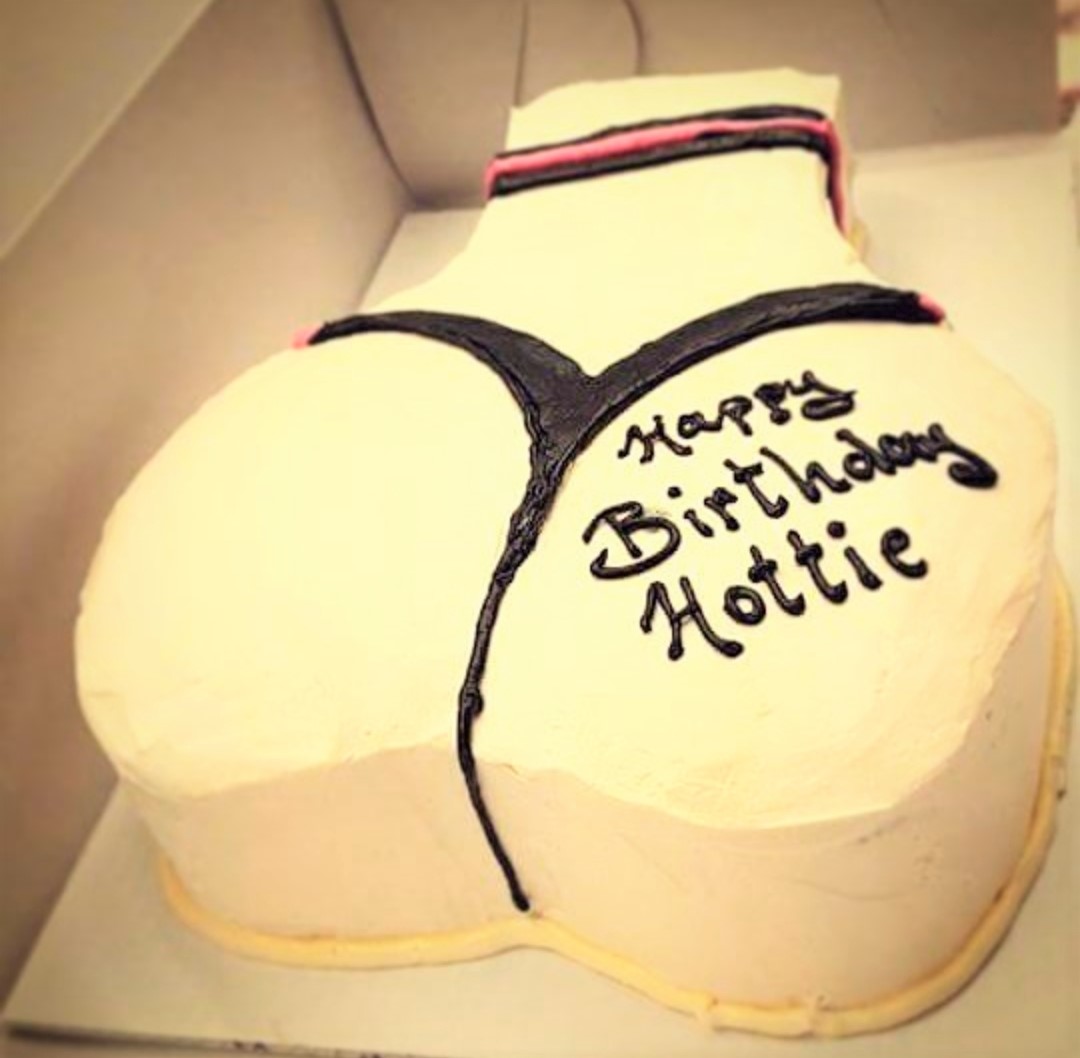 Happy
Birthday
Hottie